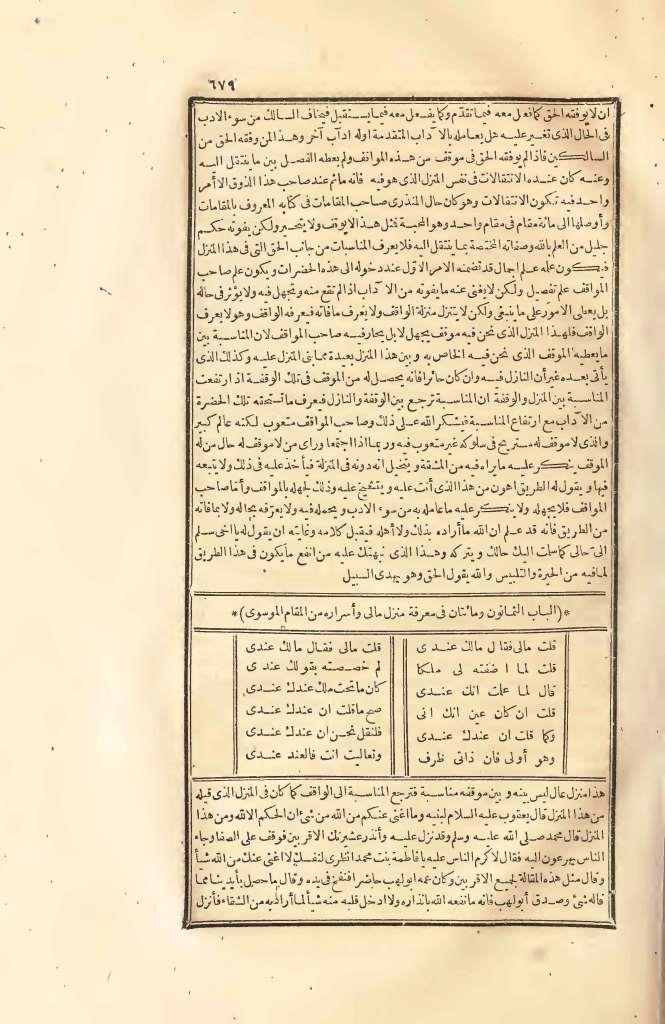 ٦٧٩
ان لا يوفقه الحق كما فعل معه فيما تقدّم وكما يفعل معه فيما يستقبل فيخاف السالك من سوء الادب
فى الحال الذى تغير عليه هل يعامله بالآداب المتقدمة اوله ادآب آخر وهذا لمن وفقه الحق من
السالكين فاذا لم يوفقه الحق فى موقف من هذه المواقف ولم يعطه الفصل بين ما ينتقل اليه
وعنه كان عنده الانتقالات فى نفس المنزل الذى هو فيه فانه ما ثم عند صاحب هذا الذوق الأمر
واحد فيه تكون الانتقالات وهو كان حال المنذرى صاحب المقامات فى كتابه المعروف بالمقامات
وأوصلها الى مائة مقام فى مقام واحد وهو المحبة فمثل هذا لا يوقف ولا يتحير ولكن يفوته حكم
جليل من العلم بالله وصفاته المختصة بما ينتقل اليه فلا يعرف المناسبات من جانب الحق التى فى هذا المنزل
فيكون علمه علم اجمال قد تضمنه الامر الاوّل عند دخوله الى هذه الحضرات ويكون علم صاحب
المواقف علم تفصيل ولكن لا يعفى عنه ما يفوته من الآداب اذا لم تقع منه وتجهل فيه ولا يؤثر فى حاله
بل يعطى الامور على ما ينبغى ولكن لا يتنزل منزلة الواقف ولا يعرف ما فاته فيعرفه الواقف وهو لا يعرف
الواقف فلهذا المنزل الذى نحن فيه موقف يجهل لا بل يحار فيه صاحب المواقف لان المناسبة بين
ما يعطيه الموقف الذى نحن فيه الخاص به وبين هذا المنزل بعيدة مما بنى المنزل عليه وكذلك الذى
يأتى بعده غير أن النازل فيه وان كان حائرا فانه يحصل له من الموقف فى تلك الوقفة اذا ارتفعت
المناسبة بين المنزل والوقفة ان المناسبة ترجع بين الوقفة والنازل فيعرف ما تستحقه تلك الحضرة
من الآداب مع ارتفاع المناسبة فيشكر الله على ذلك وصاحب المواقف متعوب لكنه عالم كبير
والذى لا موقف له مستريح فى سلوكه غير متعوب فيه وربما اذا اجتمعا ورأى من لا موقف له حال من له
الموقف ينكر عليه ما يراه فيه من المشقة ويتخيل انه دونه فى المنزلة فيأخذ عليه فى ذلك ولا يتبعه
فيها ويقول له الطريق اهون من هذا الذى أنت عليه ويتشيخ عليه وذلك لجهله بالمواقف وأما صاحب
المواقف فلا يجهله ولا ينكر عليه ما عامله به من سوء الادب ويحمله فيه ولا يعرّفه بحاله ولا بما فاته
من الطريق فانه قد علم ان الله ما أراده بذلك ولا أهله فيقبل كلامه وغايته ان يقول له يا اخى سلم
الى حالى كما سلمت اليك حالك ويتركه وهذا الذى نبهتك عليه من انفع ما يكون فى هذا الطريق
لما فيه من الحيرة والتلبيس والله يقول الحق وهو يهدى السبيل
*(الباب الثمانون ومائتان فى معرفة منزل مالى وأسراره من المقام الموسوى)*
قلت مالى فقال مالك عندى قلت مالى فقال مالك عندى
قلت لما اضفته لى ملكا لم خصصته بقولك عندى
قال لما علمت انك عندى كان ما تحت ملك عندك عندى
قلت ان كان عين انك انى صح ما قلت ان عندك عندى
وكما قلت ان عندك عندى فلنقل نحن ان عندك عندى
وهو أولى فان ذاتى ظرف وتعاليت انت فالعند عندى
هذا منزل عال ليس بينه وبين موقفه مناسبة فترجع المناسبة الى الواقف كما كان فى المنزل الذى قبله
من هذا المنزل قال يعقوب عليه السلام لبنيه وما اغنى عنكم من الله من شئ ان الحكم الا لله ومن هذا
المنزل قال محمد صلى الله عليه وسلم وقد نزل عليه وأنذر عشيرتك الاقربين فوقف على الصفا وجاء
الناس يهرعون اليه فقال لأكرم الناس عليه يا فاطمة بنت محمد انظرى لنفسك لا اغنى عنك من الله شيأ
وقال مثل هذه المقالة لجميع الاقربين وكان عمه ابو لهب حاضرا فنفخ فى يده وقال ما حصل بأيدينا مما
قاله شئ وصدق أبو لهب فانه ما نفعه الله بانذاره ولا ادخل قلبه منه شيأ لما أراد به من الشقاء فأنزل